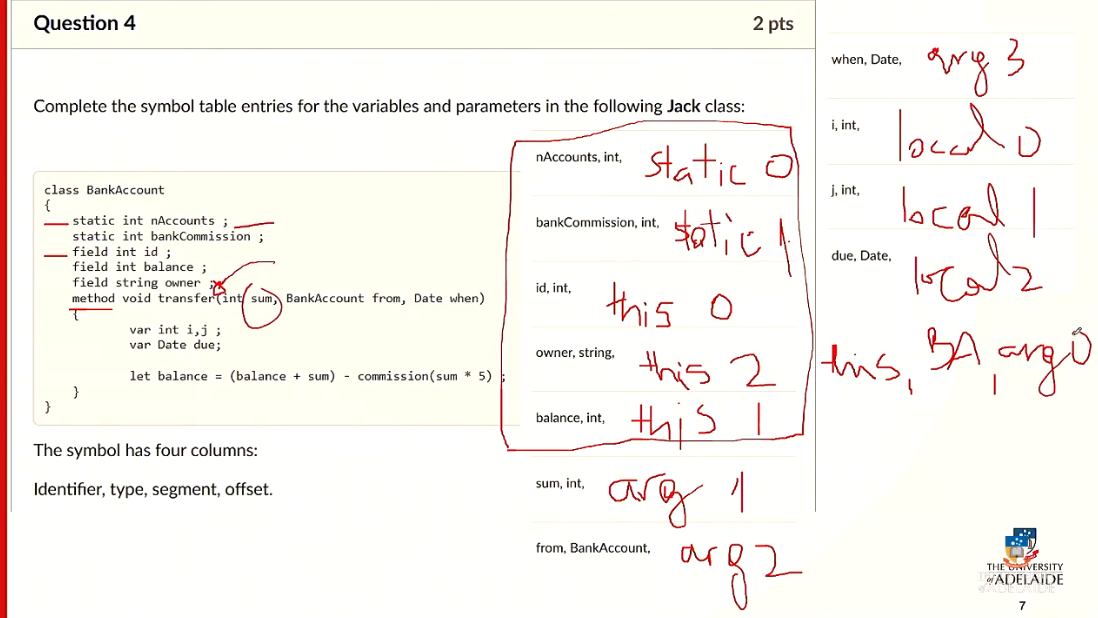 Question 4
2 pts
Complete the symbol table entries for the variables and parameters in the following Jack class:
class BankAccount
{
static int nAccounts ;
static int bankCommission ;
field int id ;
field int balance ;
field string owner ;
method void transfer(int sum, BankAccount from, Date when)
{
var int i,j ;
var Date due;
let balance = (balance + sum) - commission(sum * 5) ;
}
}
The symbol has four columns:
Identifier, type, segment, offset.
nAccounts, int, static 0
bankCommission, int, static 1
id, int, this 0
owner, string, this 2
balance, int, this 1
sum, int, arg 1
from, BankAccount, arg 2
when, Date, arg 3
i, int, local 0
j, int, local 1
due, Date, local 2
this, BA, arg 0
THE UNIVERSITY
of ADELAIDE
7